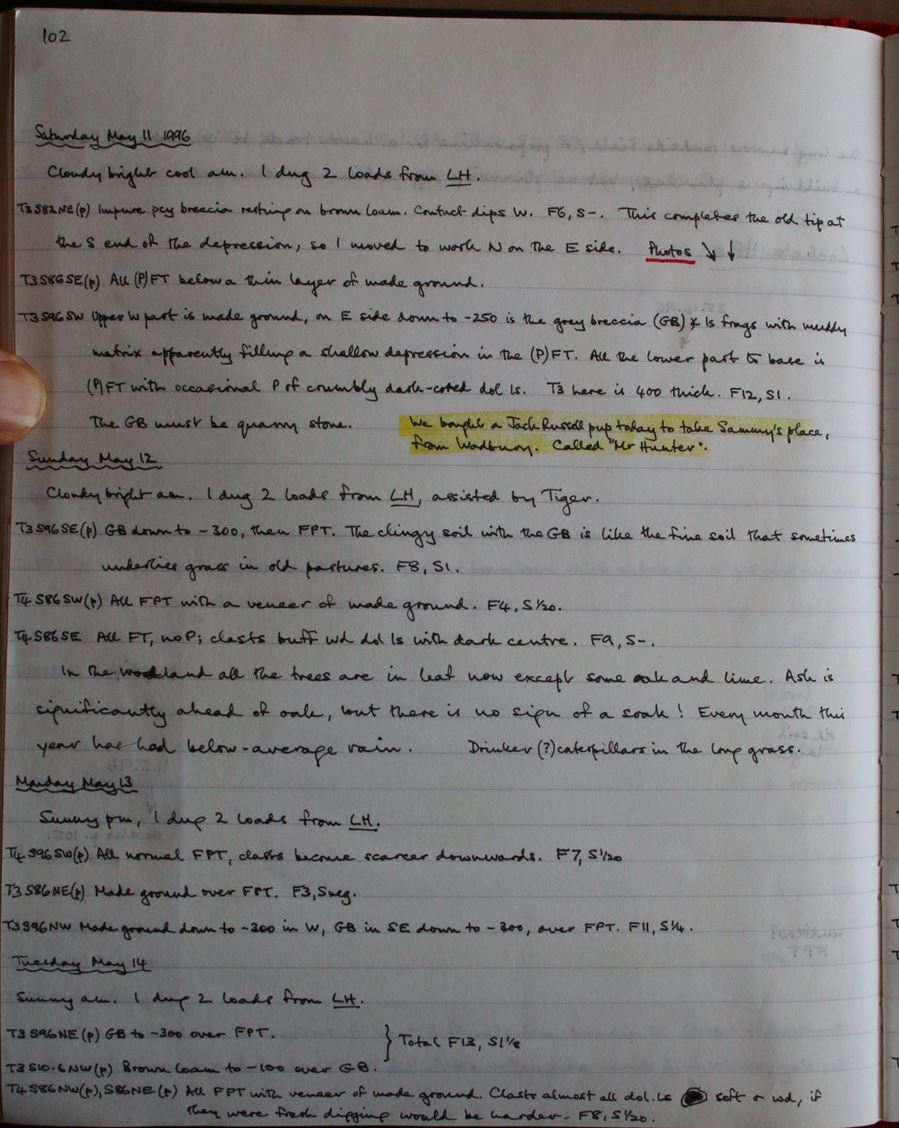 102
Saturday May 11 1996
Cloudy bright cool am. I dug 2 loads from LH.
T3S82NE(p) Impure pcy breccia resting on brown loam. Contact dips W. F6, S-. This completes the old tip at
the S end of the depression, so I moved to work N on the E side. Photos ↘ ↓
T3S86SE(p) All (P)FT below a thin layer of made ground.
T3S96SW Upper W part is made ground, on E side down to -250 is the grey breccia (GB) ls frags with muddy
matrix apparently filling a shallow depression in the (P)FT. All the lower part to base is
(P)FT with occasional P of crumbly dark-cored dol ls. T3 here is 400 thick. F12, S1.
The GB must be quarry stone. We bought a Jack Russell pup today to take Sammy's place,
from Wadbury. Called "Mr Hunter".
Sunday May 12
Cloudy bright am. I dug 2 loads from LH, assisted by Tiger.
T3S96SE(p) GB down to -300, then FPT. The clingy soil with the GB is like the fine soil that sometimes
underlies grass in old pastures. F8, S1.
T4S86SW(p) All FPT with a veneer of made ground. F4, S1/20.
T4S86SE All FT, no P; clasts buff wd dol ls with dark centre. F9, S-.
In the woodland all the trees are in leaf now except some oak and lime. Ash is
significantly ahead of oak, but there is no sign of a soak! Every month this
year has had below-average rain. Drinker (?) caterpillars in the long grass.
Monday May 13
Sunny pm, I dug 2 loads from LH.
T4S96SW(p) All normal FPT, clasts become scarcer downwards. F7, S1/20
T3S86NE(p) Made ground over FPT. F3, Sneg.
T3S96NW Made ground down to -200 in W, GB in SE down to -300, over FPT. F11, S1/4.
Tuesday May 14
Sunny am. I dug 2 loads from LH.
T3S96NE(p) GB to -300 over FPT.
} Total F13, S1 1/8
T3S10.6NW(p) Brown loam to -100 over GB.
T4S86NW(p), S86NE(p) All FPT with veneer of made ground. Clasts almost all dol.ls soft or wd, if
they were fresh digging would be harder. F8, S1/20.